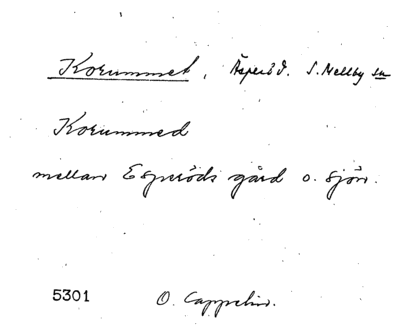 Korummet, Äsperöd. S. Mellby sn
Korummed
mellan Esperöds gård o. sjön.
5301 O. Cappelin.